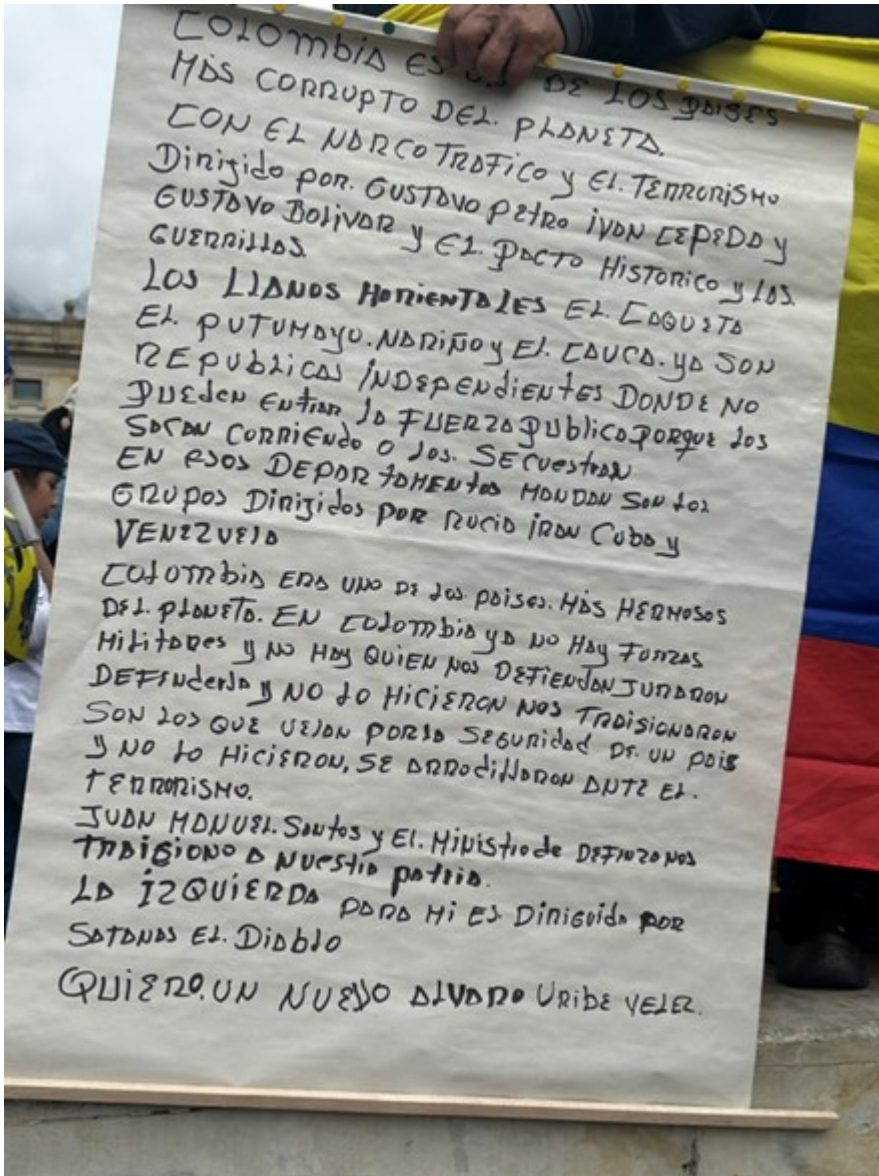 COLOMBIA ES DE LOS PAISES
MAS CORRUPTO DEL. PLANETA.
CON EL NARCOTRAFICO y EL. TERRORISMO
Dirigido por. GUSTAVO PETRO IVAN CEPEDA y
GUSTAVO BOLIVAR y EL. PACTO HISTORICO y LAS
GUERRILLAS.
LOS LLANOS HORIENTALES EL. CAQUETA
EL PUTUMAYO. NARIÑO y EL. CAUCA. YA SON
REPUBLICAS INDEPENDIENTES DONDE NO
PUEDEN ENTRAR LA FUERZA PUBLICA PORQUE LOS
SACAN CORRIENDO O LOS. SECUESTRAN
EN ESOS DEPARTAMENTOS MANDAN SON LOS
GRUPOS DIRIGIDOS POR RUCIA IRAN CUBA y
VENEZUELA
COLOMBIA ERA UNO DE LOS PAISES. MAS HERMOSOS
DEL. PLANETA. EN COLOMBIA YA NO HAY FORZAS
MILITARES Y NO HAY QUIEN NOS DEFIENDAN JURARON
DEFENDERLA y NO LO HICIERON NOS TRAISIONARON
SON LOS QUE VELAN POR LA SEGURIDAD DE. UN PAIS
Y NO LO HICIERON, SE ARRODILLARON ANTE EL.
TERRORISMO.
JUAN MANUEL. SANTOS y EL. MINISTRO de DEFINZA NOS
TRAISIONO A NUESTRA PATRIA.
LA IZQUIERDA PARA MI ES DIRIGUIDA POR
SATANAS EL. DIABLO
QUIERO. UN NUEVO ALVARO URIBE VELEZ.